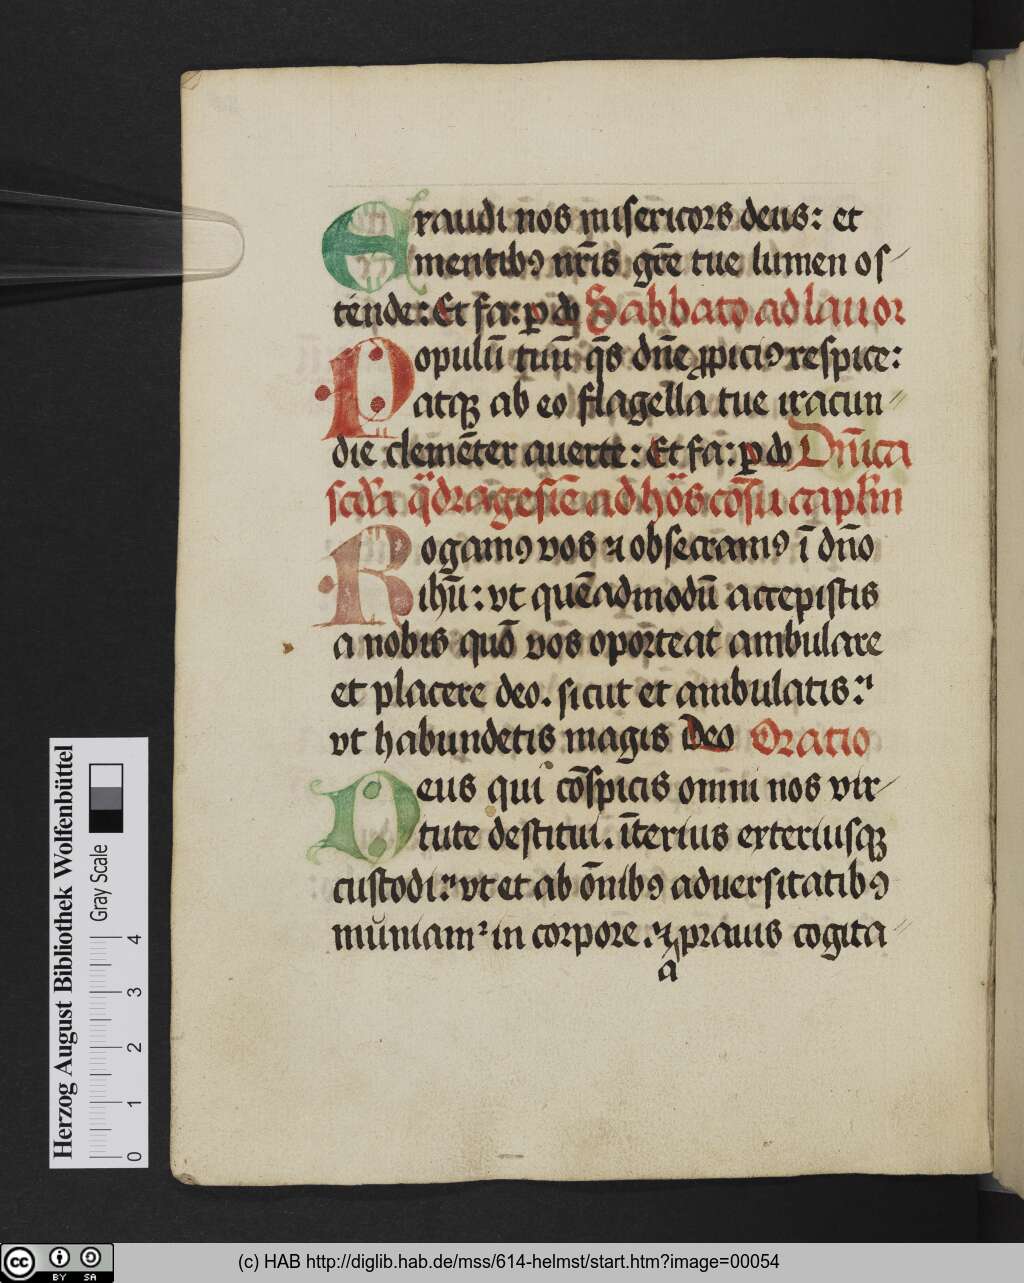 Exaudi nos misericors deus: et
mentibꝯ nr̄is gr̄e tue lumen os⸗
tende: Et fa: ꝑ dō Sabbato ad lauor
Populū tuū q̄s dn̄e ꝓpiciꝯ respice:
atqꝫ ab eo flagella tue iracun⸗
die clemēter auerte: Et fa: ꝑ dō Dn̄ica
scd̄a q̄dragesīe ad hōs cōsu capl̄m
Rogamꝯ vos ⁊ obsecramꝯ ī dn̄o
ihū: vt quēadmodū accepistis
a nobis quō vos oporteat ambulare
et placere deo. sicut et ambulatis:
vt habundetis magis Deo Oratio
Deus qui cōspicis omni nos vir⸗
tute destitui. īterius exteriusqꝫ
custodi: vt et ab ōnibꝯ aduersitatibꝯ
muniamᷣ in corpore. ⁊ prauis cogita⸗
a
Herzog August Bibliothek Wolfenbüttel
Gray Scale
0 1 2 3 4
cc BY SA
(c) HAB http://diglib.hab.de/mss/614-helmst/start.htm?image=00054